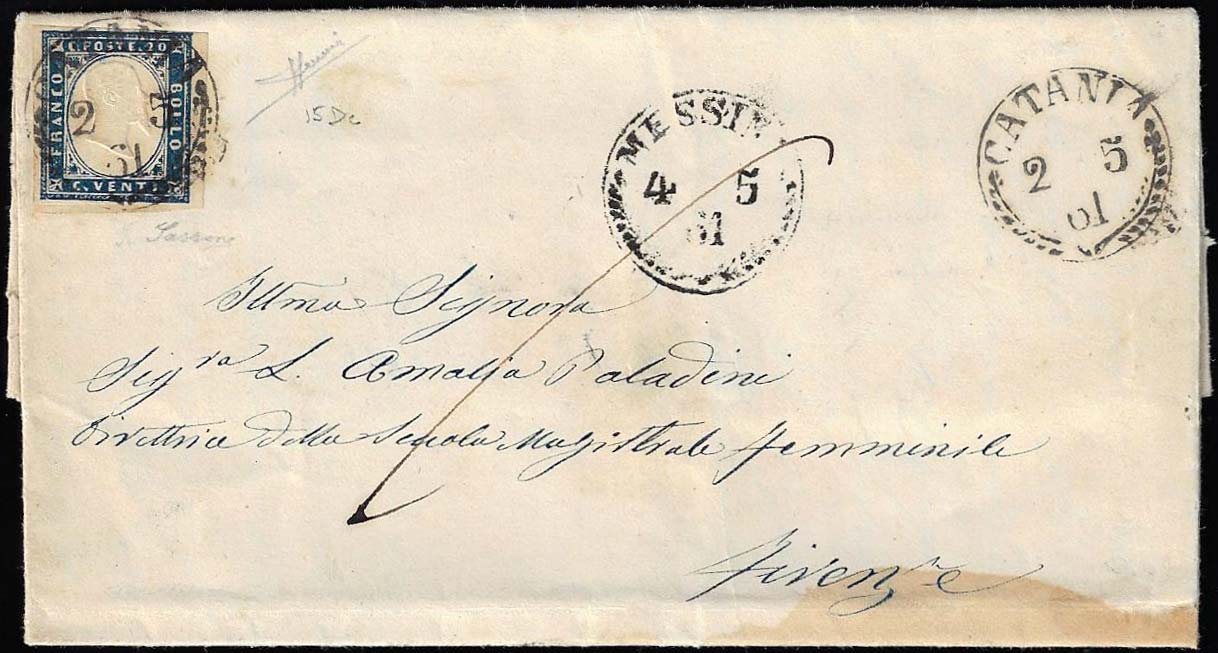 C. POSTE. 20
FRANCO
BOLLO
C. VENTI
2 5
61
15 Dc
MESSIN
4 5
61
CATANIA
2 5
61
Sassone
Illma Signora
Sigra L. Amalia Paladini
Direttrice della Scuola Magistrale Femminile
Firenze